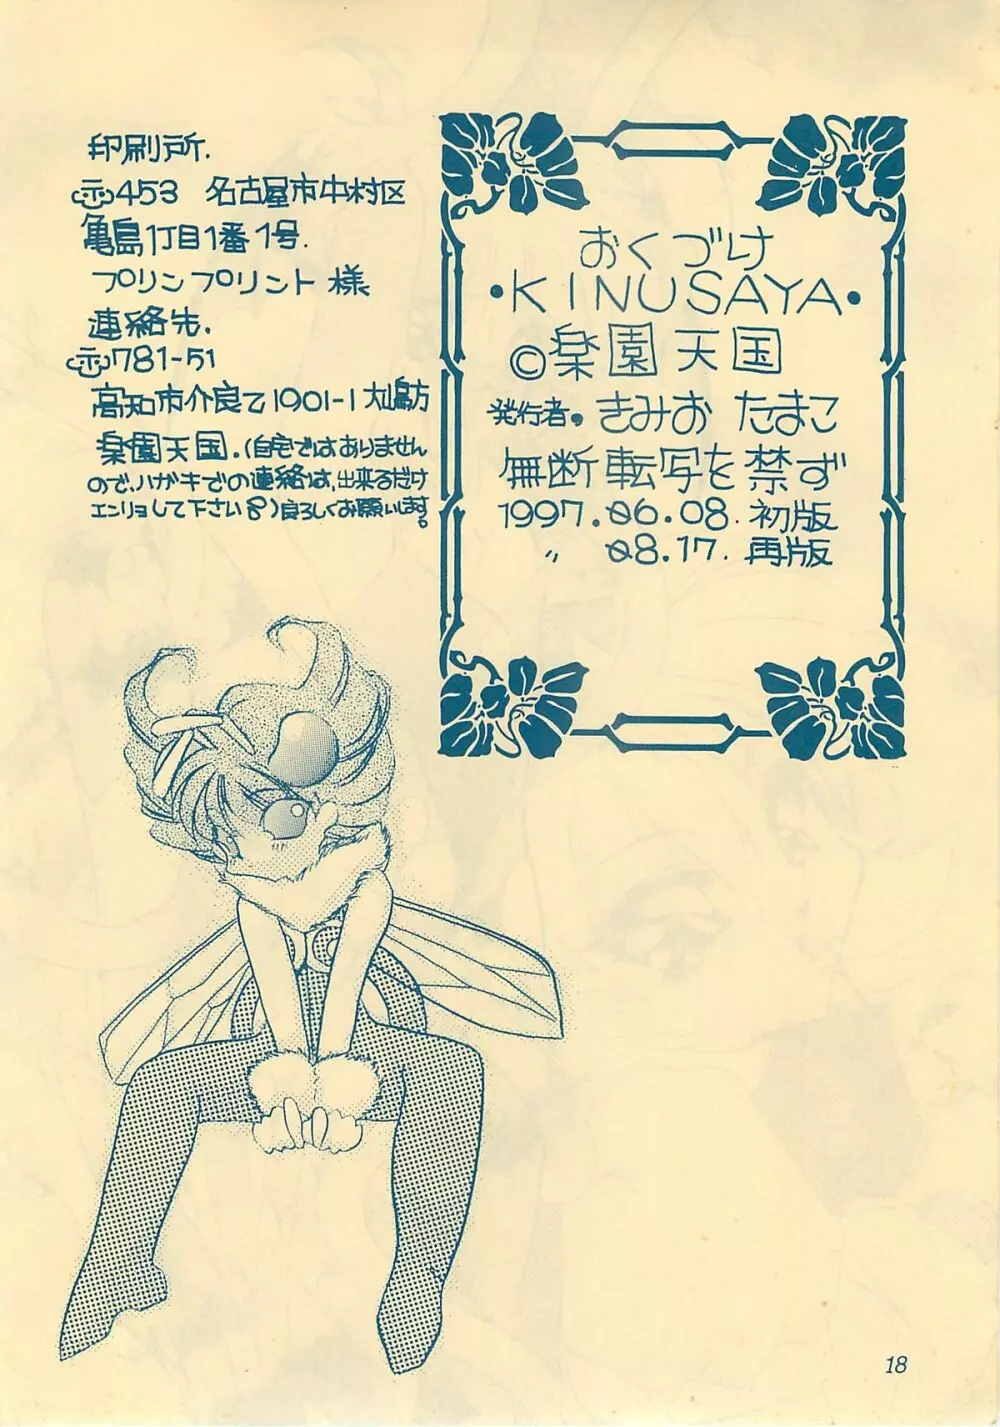 おくづけ
・KINUSAYA・
©楽園天国
発行者。きみお たまこ
無断転写を禁ず
1997.06.08.初版
〃 08.17.再版
印刷所.
〒453 名古屋市中村区
亀島1丁目1番1号.
プリンプリント 様
連絡先.
〒781-51
高知市介良乙1901-1 大嶋方
楽園天国.(自宅ではありません
ので、ハガキでの連絡は、出来るだけ
エンリョして下さい)良ろしくお願いします。
18